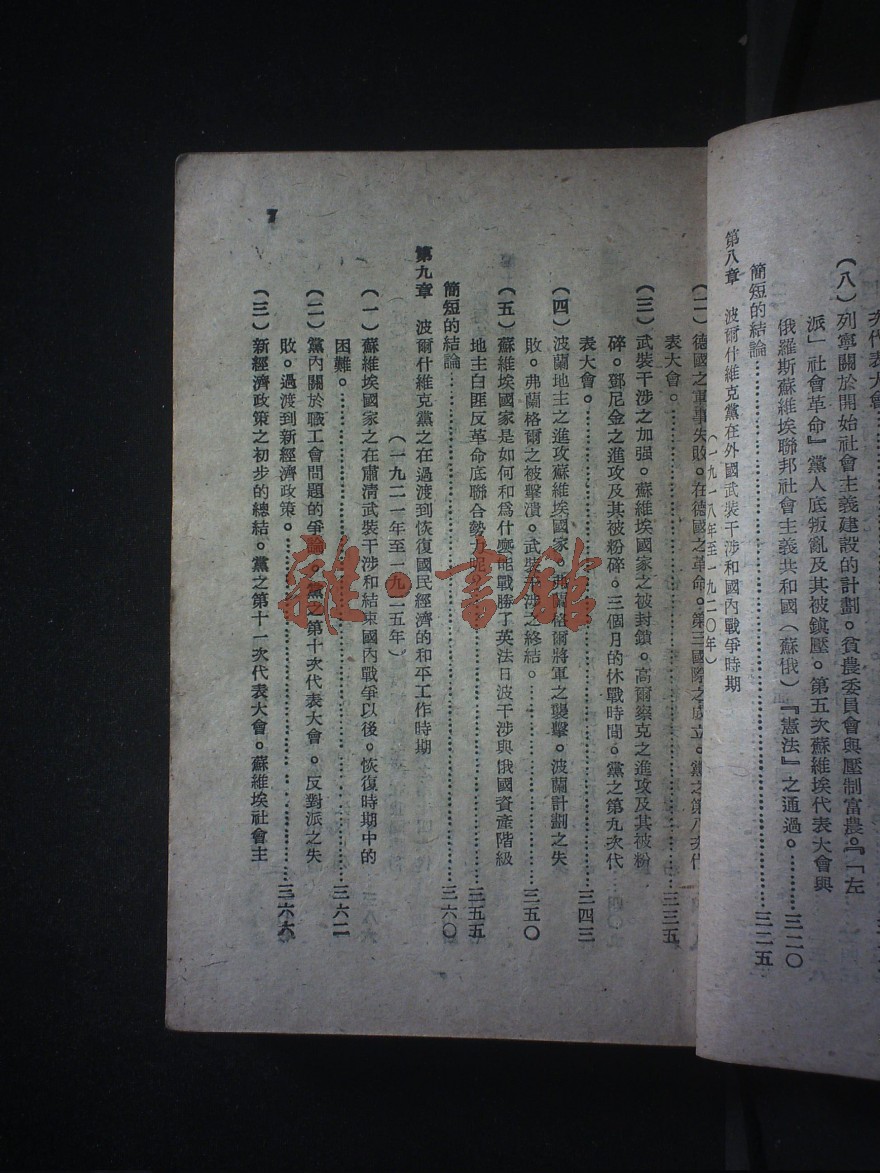 次代表大會
(八)列寧關於開始社會主義建設的計劃。貧農委員會與壓制富農。『「左
派」社會革命』黨人底叛亂及其被鎮壓。第五次蘇維埃代表大會與
俄羅斯蘇維埃聯邦社會主義共和國(蘇俄)『憲法』之通過。…………三二〇
簡短的結論…………三二五
第八章 波爾什維克黨在外國武裝干涉和國內戰爭時期
(一九一八年至一九二〇年)
(二)德國之軍事失敗。在德國之革命。第三國際之成立。黨之第八次代
表大會。…………三三五
(三)武裝干涉之加强。蘇維埃國家之被封鎖。高爾察克之進攻及其被粉
碎。鄧尼金之進攻及其被粉碎。三個月的休戰時間。黨之第九次代
表大會。…………三四三
(四)波蘭地主之進攻蘇維埃國家。弗蘭格爾將軍之襲擊。波蘭計劃之失
敗。弗蘭格爾之被擊潰。武裝干涉之終結。…………三五〇
(五)蘇維埃國家是如何和爲什麽能戰勝了英法日波干涉與俄國資產階級
地主白匪反革命底聯合勢力呢…………三五五
簡短的結論…………三六〇
第九章 波爾什維克黨之在過渡到恢復國民經濟的和平工作時期
(一九二一年至一九二五年)
(一)蘇維埃國家之在肅清武裝干涉和結束國內戰爭以後。恢復時期中的
困難。…………三六二
(二)黨內關於職工會問題的爭論。黨之第十次代表大會。反對派之失
敗。過渡到新經濟政策。…………三六六
(三)新經濟政策之初步的總結。黨之第十一次代表大會。蘇維埃社會主
7
雜·書館